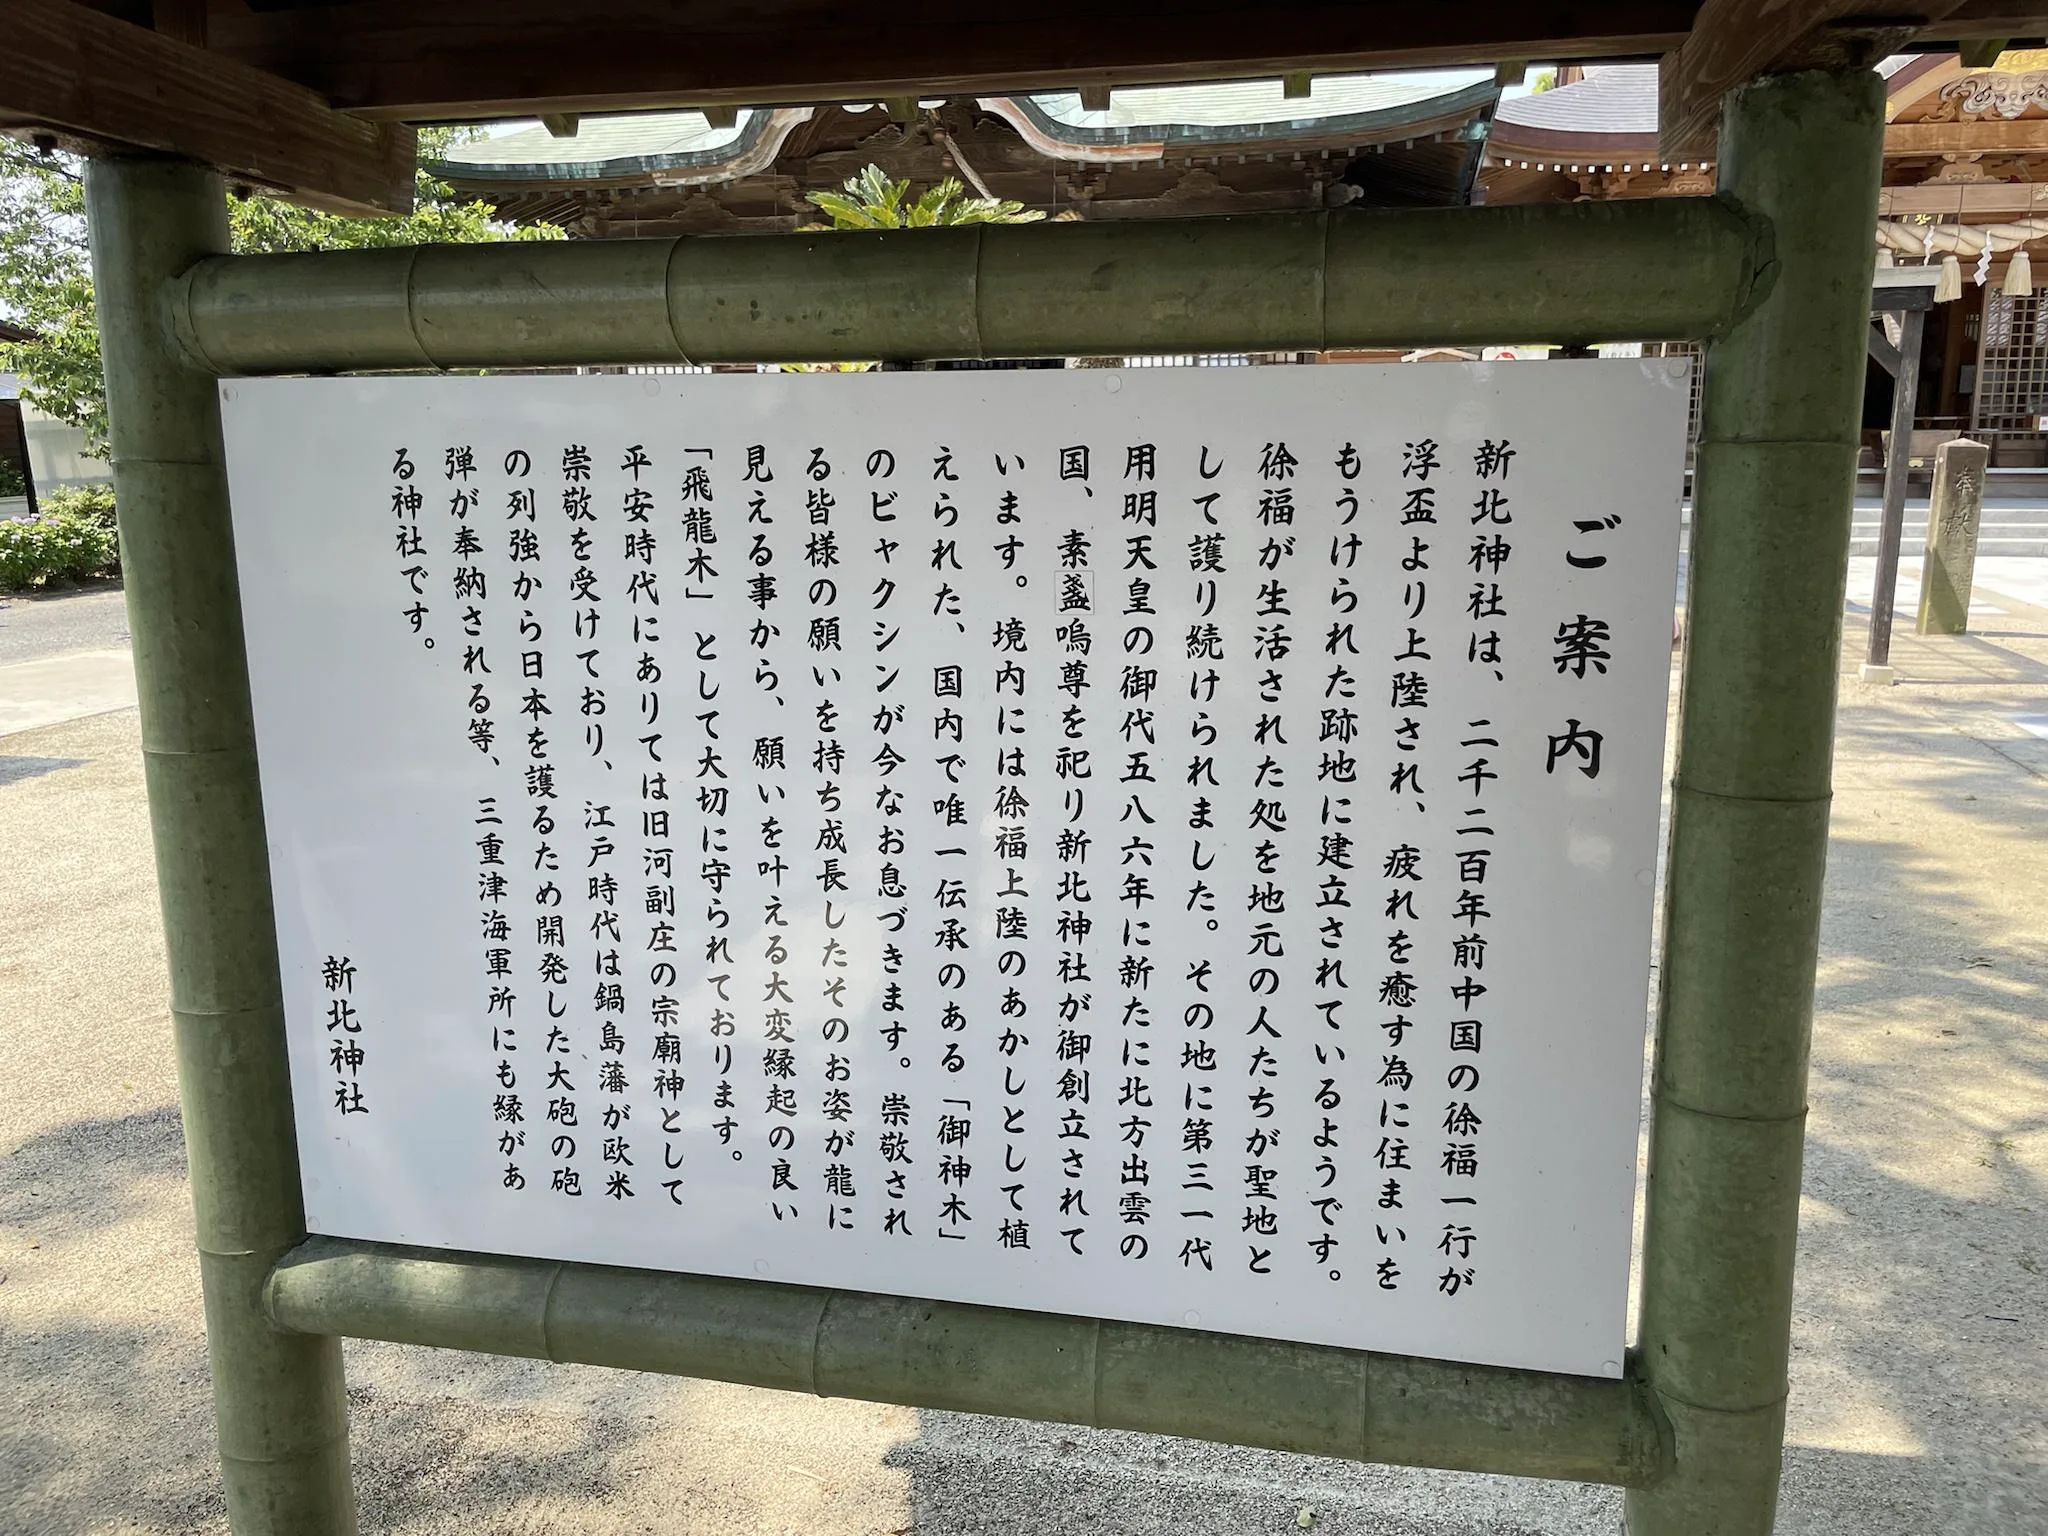 ご案内
新北神社は、二千二百年前中国の徐福一行が
浮盃より上陸され、疲れを癒す為に住まいを
もうけられた跡地に建立されているようです。
徐福が生活された処を地元の人たちが聖地と
して護り続けられました。その地に第三一代
用明天皇の御代五八六年に新たに北方出雲の
国、素盞嗚尊を祀り新北神社が御創立されて
います。境内には徐福上陸のあかしとして植
えられた、国内で唯一伝承のある「御神木」
のビャクシンが今なお息づきます。崇敬され
る皆様の願いを持ち成長したそのお姿が龍に
見える事から、願いを叶える大変縁起の良い
「飛龍木」として大切に守られております。
平安時代にありては旧河副庄の宗廟神として
崇敬を受けており、江戸時代は鍋島藩が欧米
の列強から日本を護るため開発した大砲の砲
弾が奉納される等、三重津海軍所にも縁があ
る神社です。
新北神社
奉献